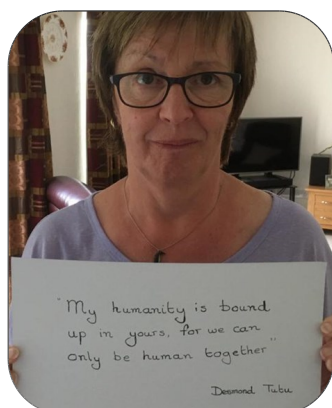 "My humanity is bound
up in yours, for we can
only be human together"
Desmond Tutu